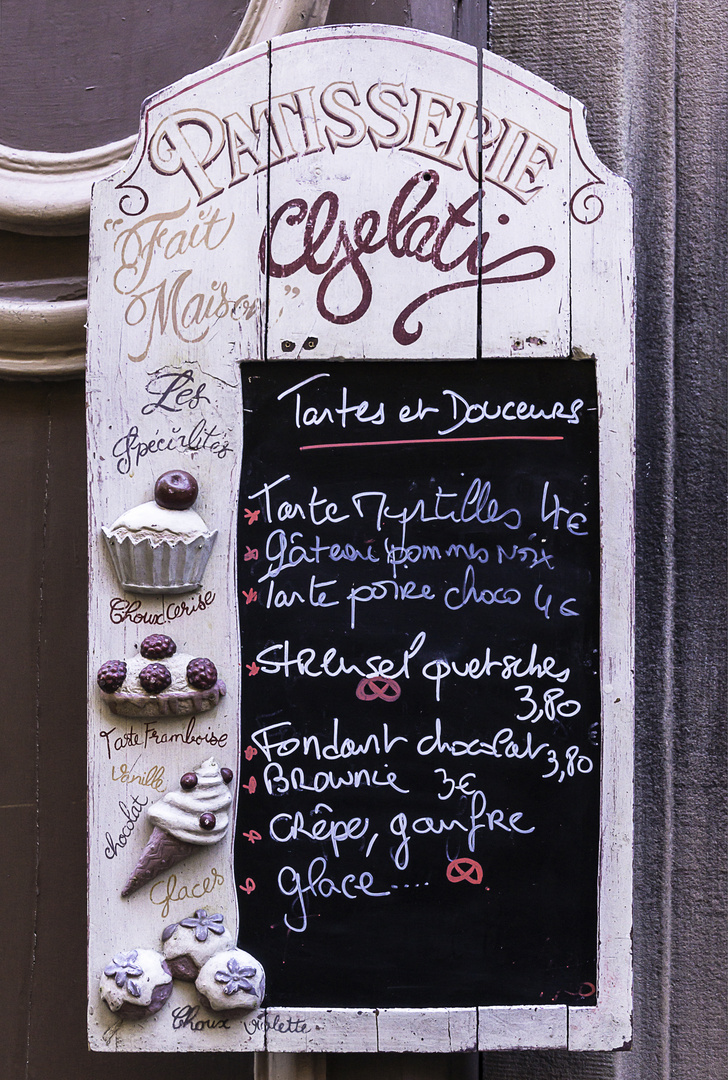 PATISSERIE
Gelati
"Fait
Maison"
Les
Spécialités
Choux Cerise
Tarte Framboise
Vanille
chocolat
Glaces
Choux violette
Tartes et Douceurs
Tarte Myrtilles 4€
Gâteau pommes noix
Tarte poire choco 4€
Streusel quetsches
3,80
Fondant chocolat 3,80
Brownie 3€
Crêpe, gaufre
glace....